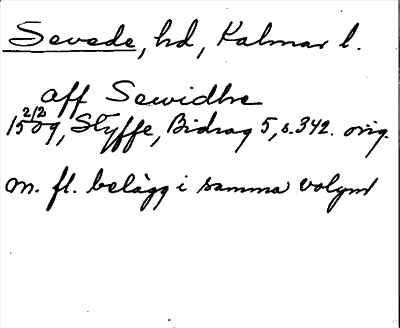 Sevede, hd, Kalmar l.
aff Sewidhre
15 2/2 09, Styffe, Bidrag 5, s. 342. orig.
m. fl. belägg i samma volym